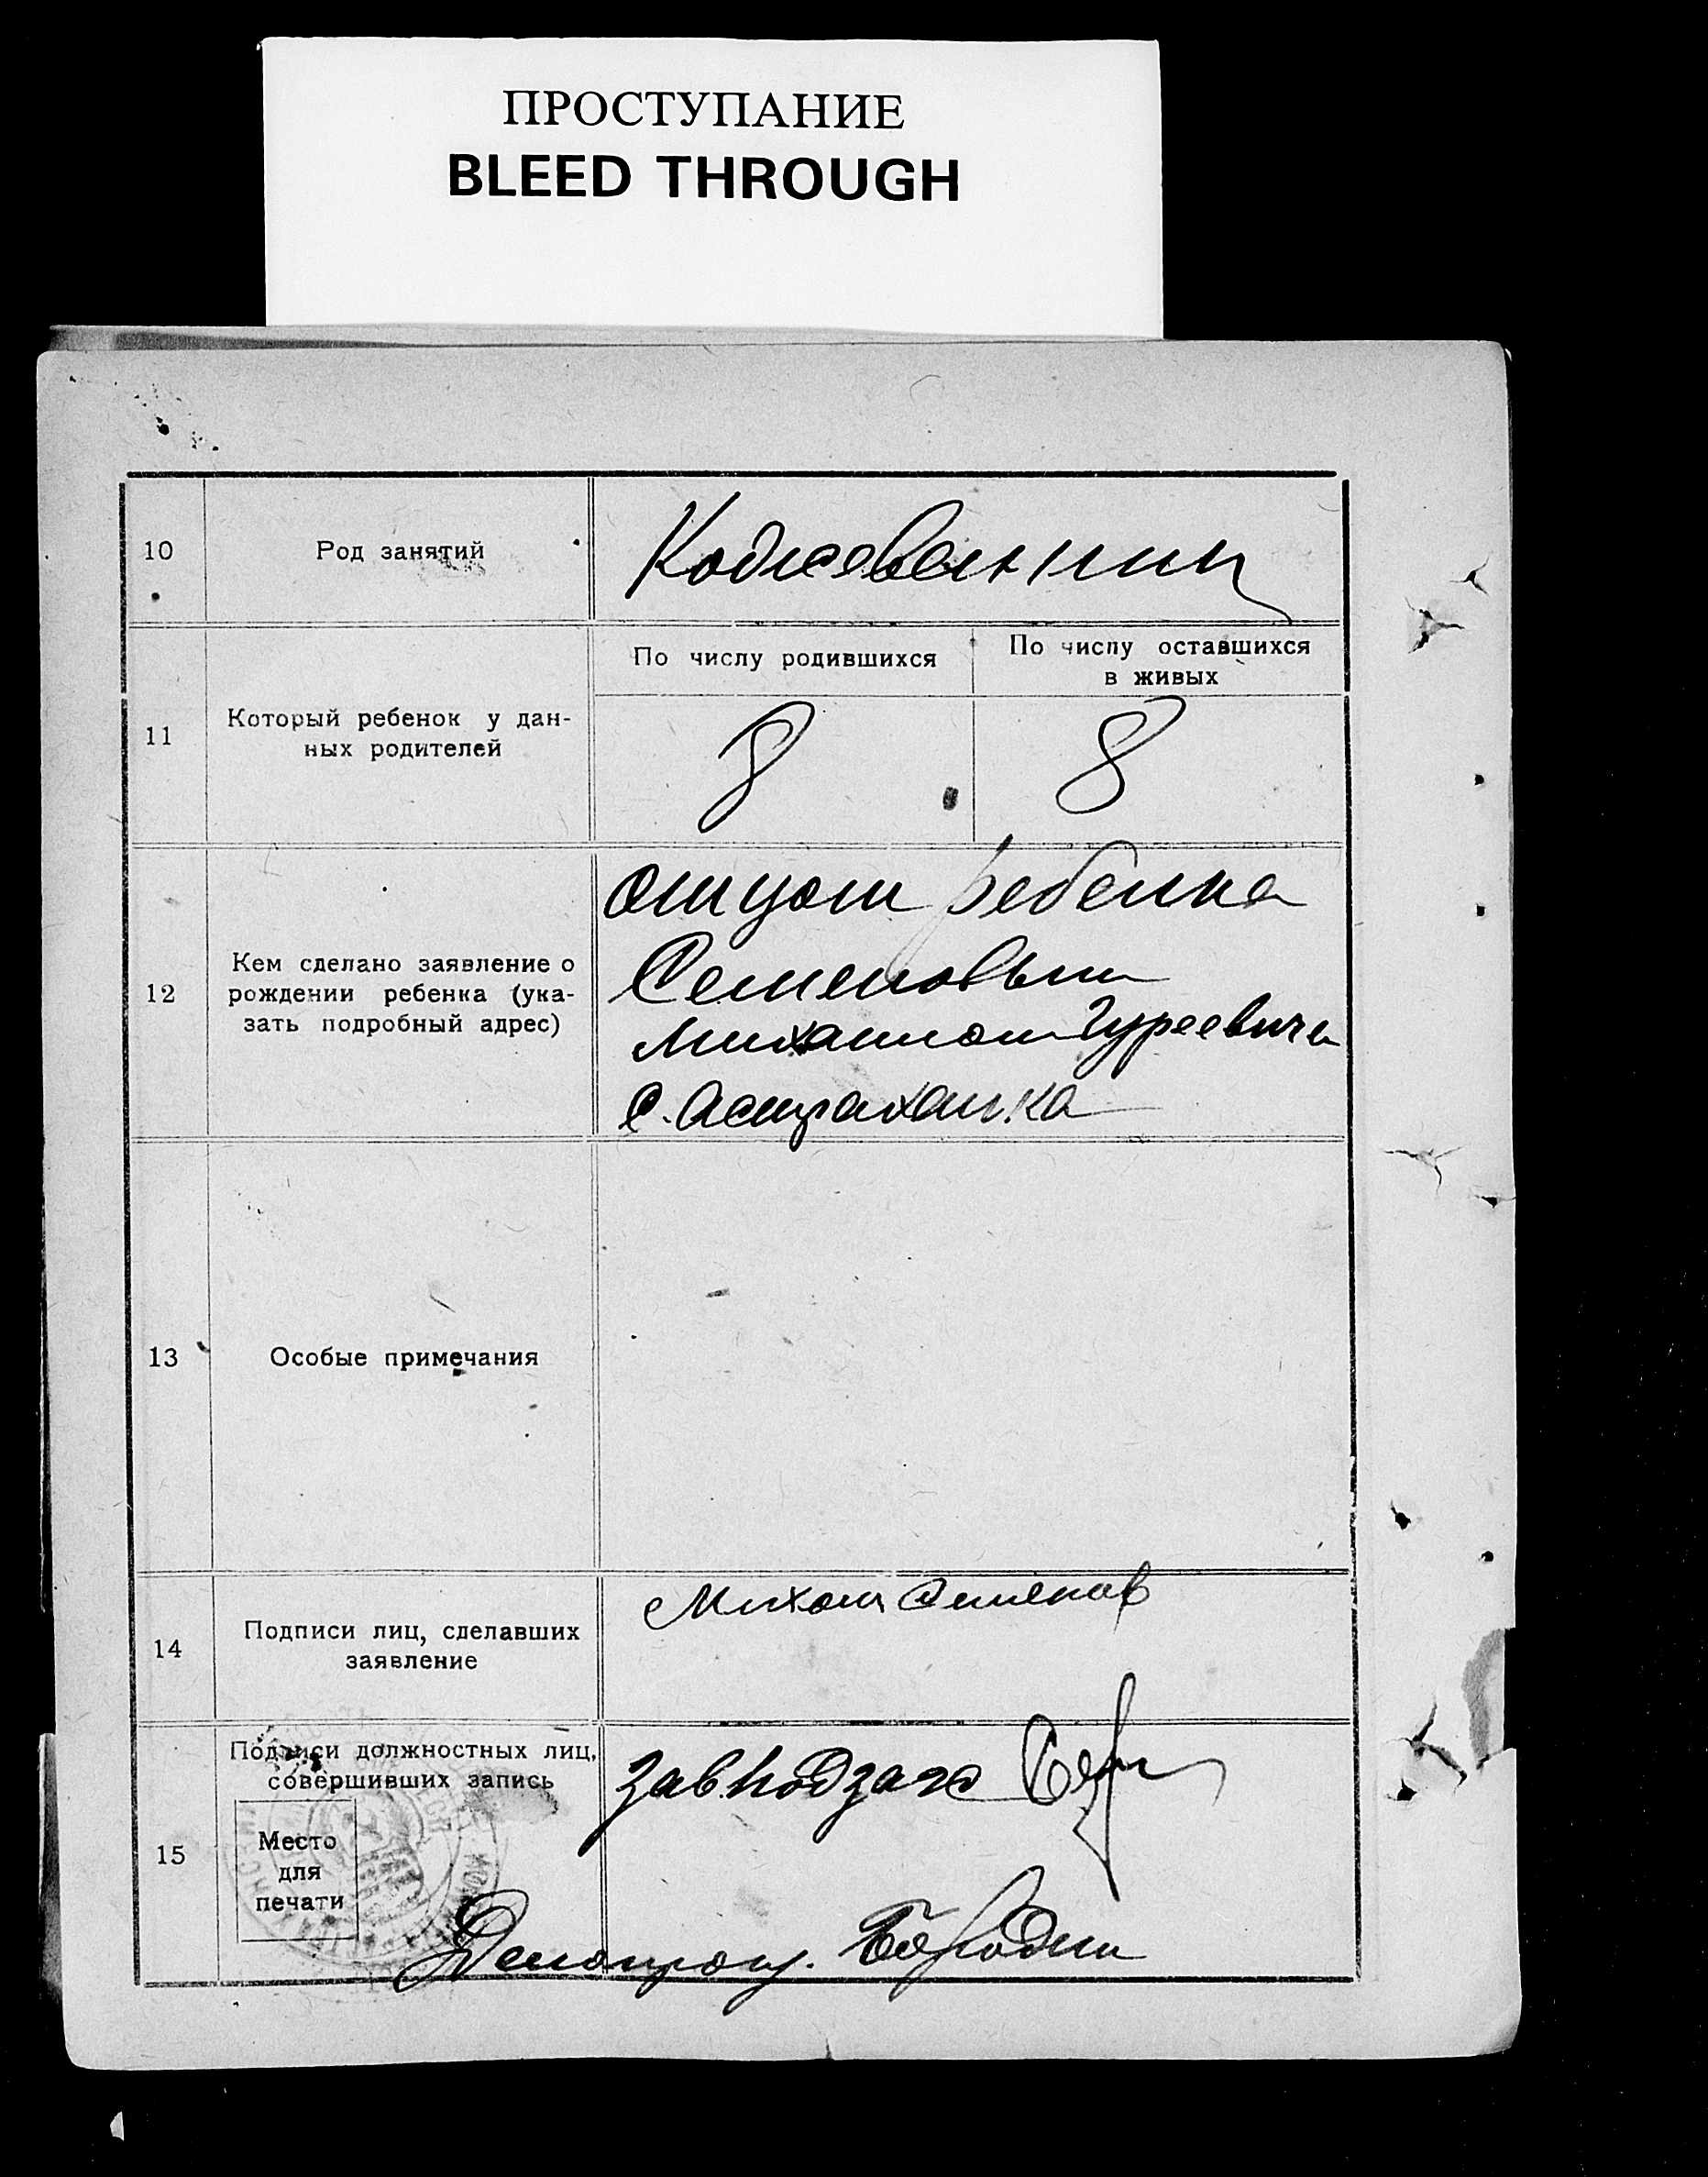 ПРОСТУПАНИЕ
BLEED THROUGH
10
Род занятий
Кожевенник
11
Который ребенок у дан-
ных родителей
По числу родившихся
По числу оставшихся
в живых
8
8
12
Кем сделано заявление о
рождении ребенка (ука-
зать подробный адрес)
отцом ребенка
Семеновым
Михаилом Гуреевичем
с. Астраханка
13
Особые примечания
14
Подписи лиц, сделавших
заявление
Михаил Семенов
15
Подписи должностных лиц,
совершивших запись
Место
для
печати
Завподзагс
Делопроиз. Бородин